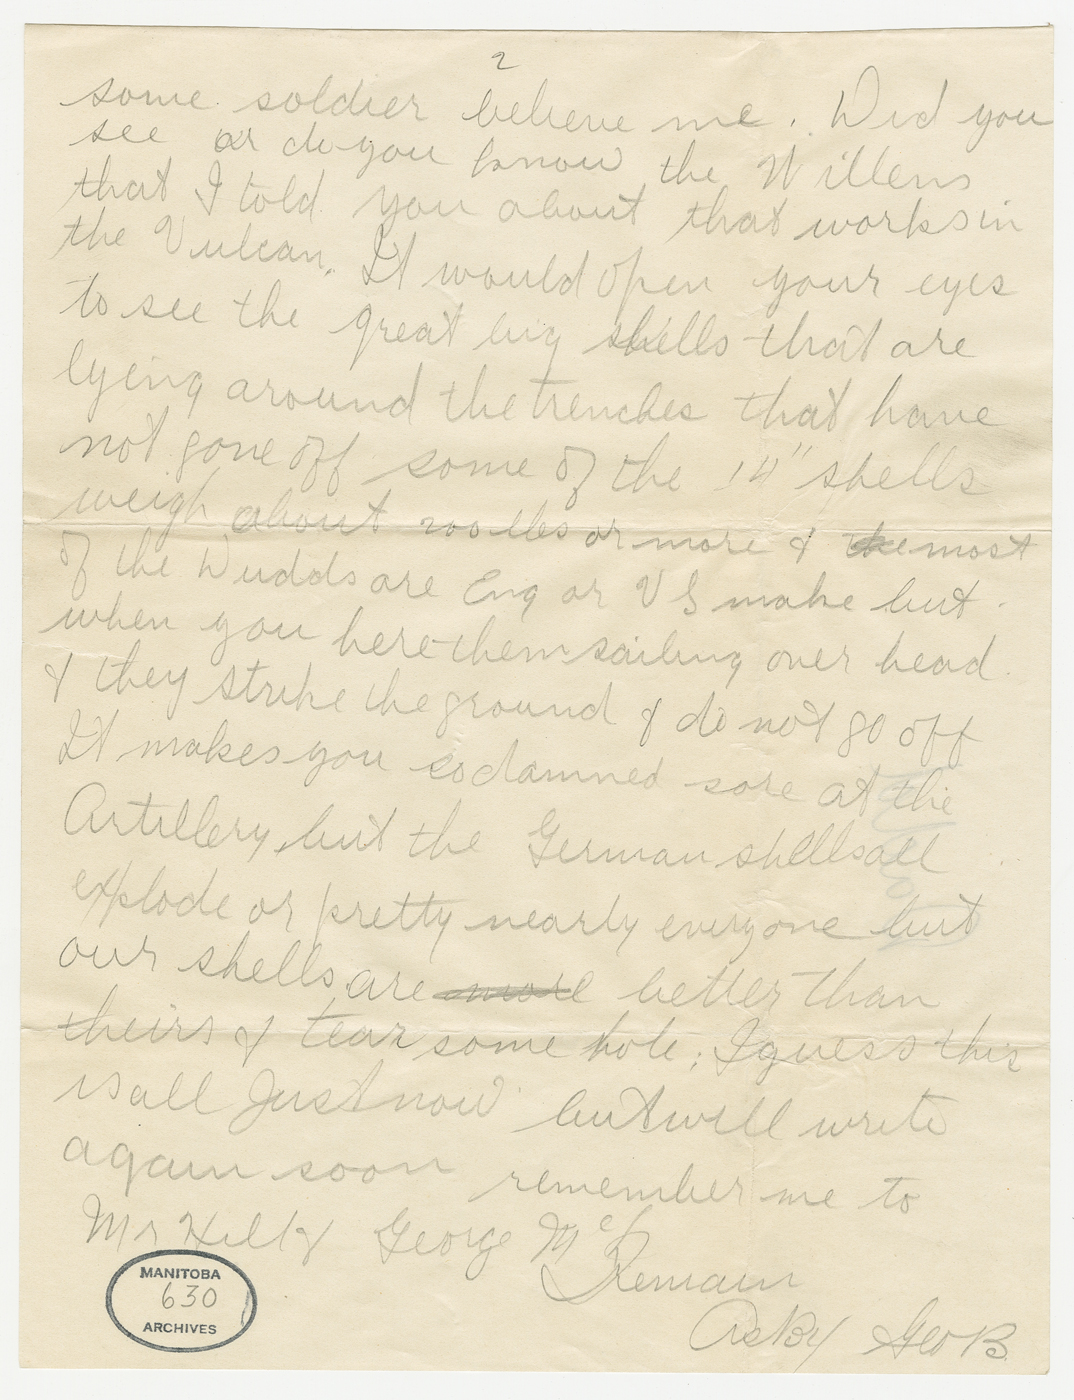 2
some soldier believe me. Did you
see or do you know the Willens
that I told you about that works in
the Vulcan. It would open your eyes
to see the great big shells that are
lyeing around the trenches that have
not gone off some of the 14" shells
weigh about lbs or more & the most
of the Dudds are Eng or US make but
when you here them sailing over head
& they strike the ground & do not go off
It makes you so damned sore at the
Artillery, but the German shells all
explode or pretty nearly everyone but
our shells are better than
theirs & tear some hole; I guess this
is all Just now but will write
again soon remember me to
Mr George Mc
Remain
Geo B
MANITOBA
630
ARCHIVES